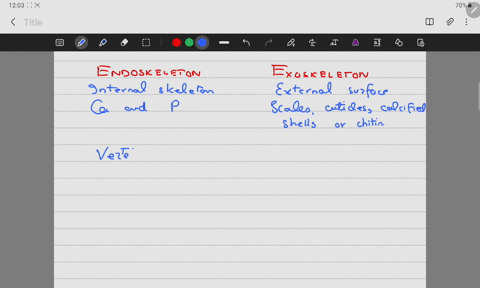 12:03
70%
Title
ENDOSKELETON EXOSKELETON
Internal skeleton External surface
Ca and P Scales, cuticles, calcified
shells or chitin
Verte